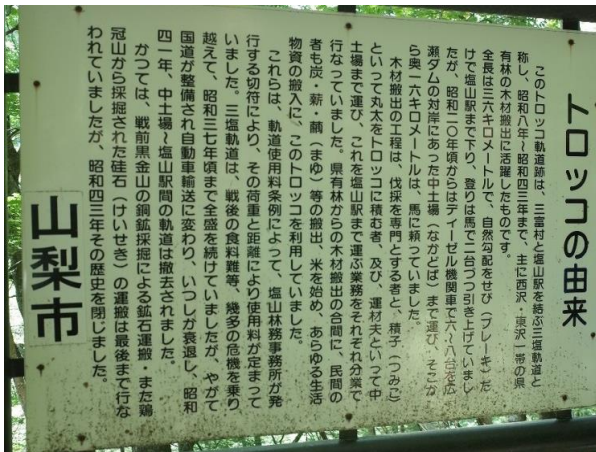 トロッコの由来
このトロッコ軌道跡は、三富村と塩山駅を結ぶ三塩軌道と
称し、昭和八年〜昭和四三年まで、主に西沢・東沢一帯の県
有林の木材搬出に活躍したものです。
全長は三六キロメートルで、自然勾配をせび(ブレーキ)だ
けで塩山駅まで下り、登りは馬で一台づつ引き上げていまし
たが、昭和二〇年頃からはディーゼル機関車で六〜八台を広
瀬ダムの対岸にあった中土場(なかどば)まで運び、そこか
ら奥一六キロメートルは、馬に頼っていました。
木材搬出の工程は、伐採を専門とする者と、積子(つみこ)
といって丸太をトロッコに積む者、及び、運材夫といって中
土場まで運び、これを塩山駅まで運ぶ業務をそれぞれ分業で
行なっていました。県有林からの木材搬出の合間に、民間の
者も炭・薪・繭(まゆ)等の搬出、米を始め、あらゆる生活
物資の搬入に、このトロッコを利用していました。
これらは、軌道使用料条例によって、塩山林務事務所が発
行する切符により、その荷重と距離により使用料が定まって
いました。三塩軌道は、戦後の食料難等、幾多の危機を乗り
越えて、昭和三七年頃まで全盛を続けていましたが、やがて
国道が整備され自動車輸送に変わり、いつしか衰退し、昭和
四一年、中土場〜塩山駅間の軌道は撤去されました。
かつては、戦前黒金山の銅鉱採掘による鉱石運搬・また鶏
冠山から採掘された硅石(けいせき)の運搬は最後まで行な
われていましたが、昭和四三年その歴史を閉じました。
山梨市